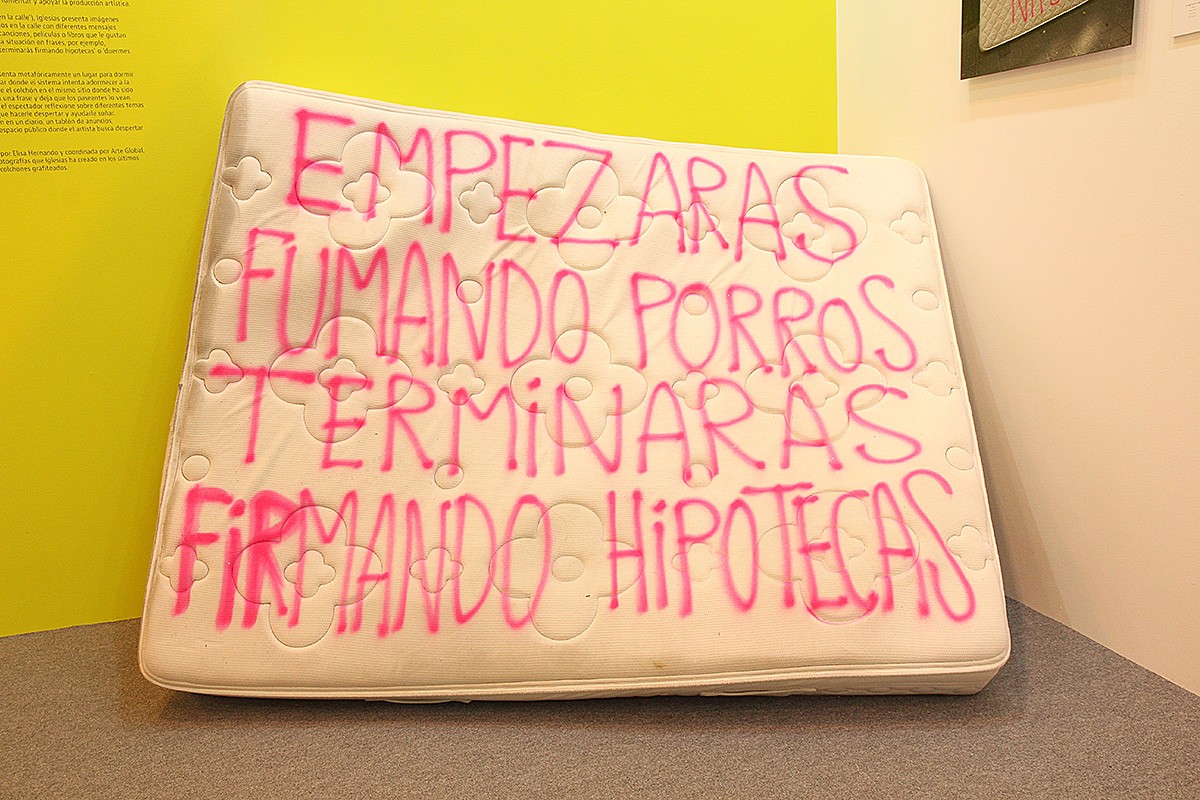 fomentar y apoyar la producción artística.
en la calle'), Iglesias presenta imágenes
os en la calle con diferentes mensajes
canciones, películas o libros que le gustan
a situación en frases, por ejemplo,
terminarás firmando hipotecas' o 'duermes
senta metafóricamente un lugar para dormir
ar donde el sistema intenta adormecer a la
e el colchón en el mismo sitio donde ha sido
una frase y deja que los paseantes lo vean.
el espectador reflexione sobre diferentes temas
que hacerle despertar y ayudarle soñar.
n en un diario, un tablón de anuncios,
espacio público donde el artista busca despertar
por Elisa Hernando y coordinada por Arte Global,
otografías que Iglesias ha creado en los últimos
colchones grafiteados.
EMPEZARAS
FUMANDO PORROS
TERMiNARAS
FiRMANDO HiPOTECAS